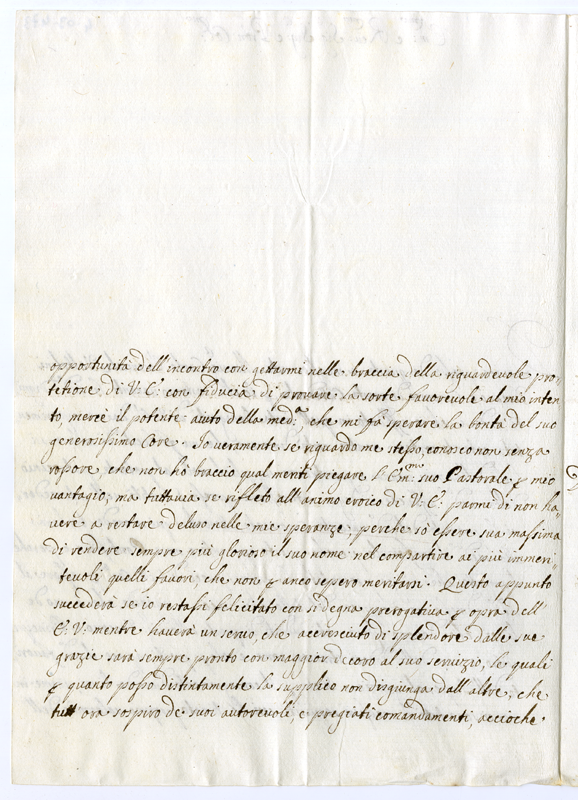 opportunità dell'incontro con gettarmi nelle braccia della riguardevole pro-
tetione di V: E: con fiducia di provare la sorte favorevole al mio inten
to, mercè il potente aiuto della med.ª, che mi fà sperare la bontà del suo
generosissimo Core. Io veramente se riguardo me stesso, conosco non senza
rossore, che non hò braccio qual meriti piegare l'Em.mo suo Pastorale p mio
vantagio; ma tuttavia se rifleto all'animo eroico di V: E: parmi di non ha-
vere a restare deluso nelle mie speranze, perche sò essere sua massima
di rendere sempre più glorioso il suo nome nel compartire ai più immeri-
tevoli quelli favori, che non p anco sepero meritarsi. Questo appunto
succederà se io restassi felicitato con sì degna prerogativa p opra dell'
E: V: mentre haverà un servo, che accresciuto di splendore dalle sue
grazie sarà sempre pronto con maggior decoro al suo servizio, le quali
p quanto posso distintamente la supplico non disgiunga dall'altre, che
tutt'ora sospiro de suoi autorevoli, e pregiati comandamenti, accioche